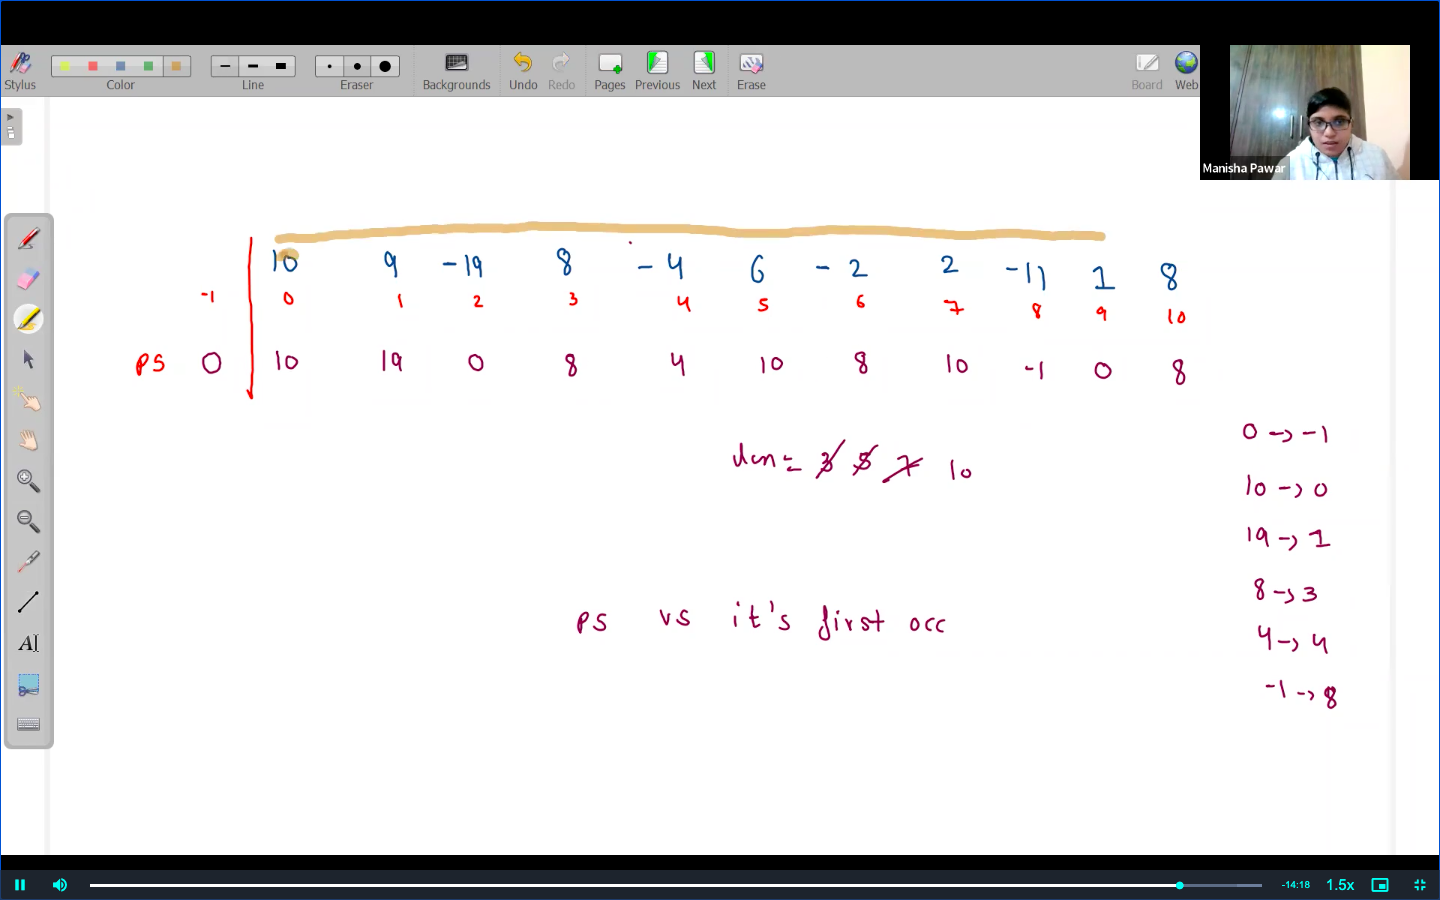 Stylus Color Line Eraser Backgrounds Undo Redo Pages Previous Next Erase Board Web
Manisha Pawar
10 9 -19 8 -4 6 -2 2 -11 1 8
-1 0 1 2 3 4 5 6 7 8 9 10
PS 0 10 19 0 8 4 10 8 10 -1 0 8
len = 3 5 7 10
0 -> -1
10 -> 0
19 -> 1
8 -> 3
4 -> 4
-1 -> 8
PS vs it's first occ
AI
-14:18 1.5x